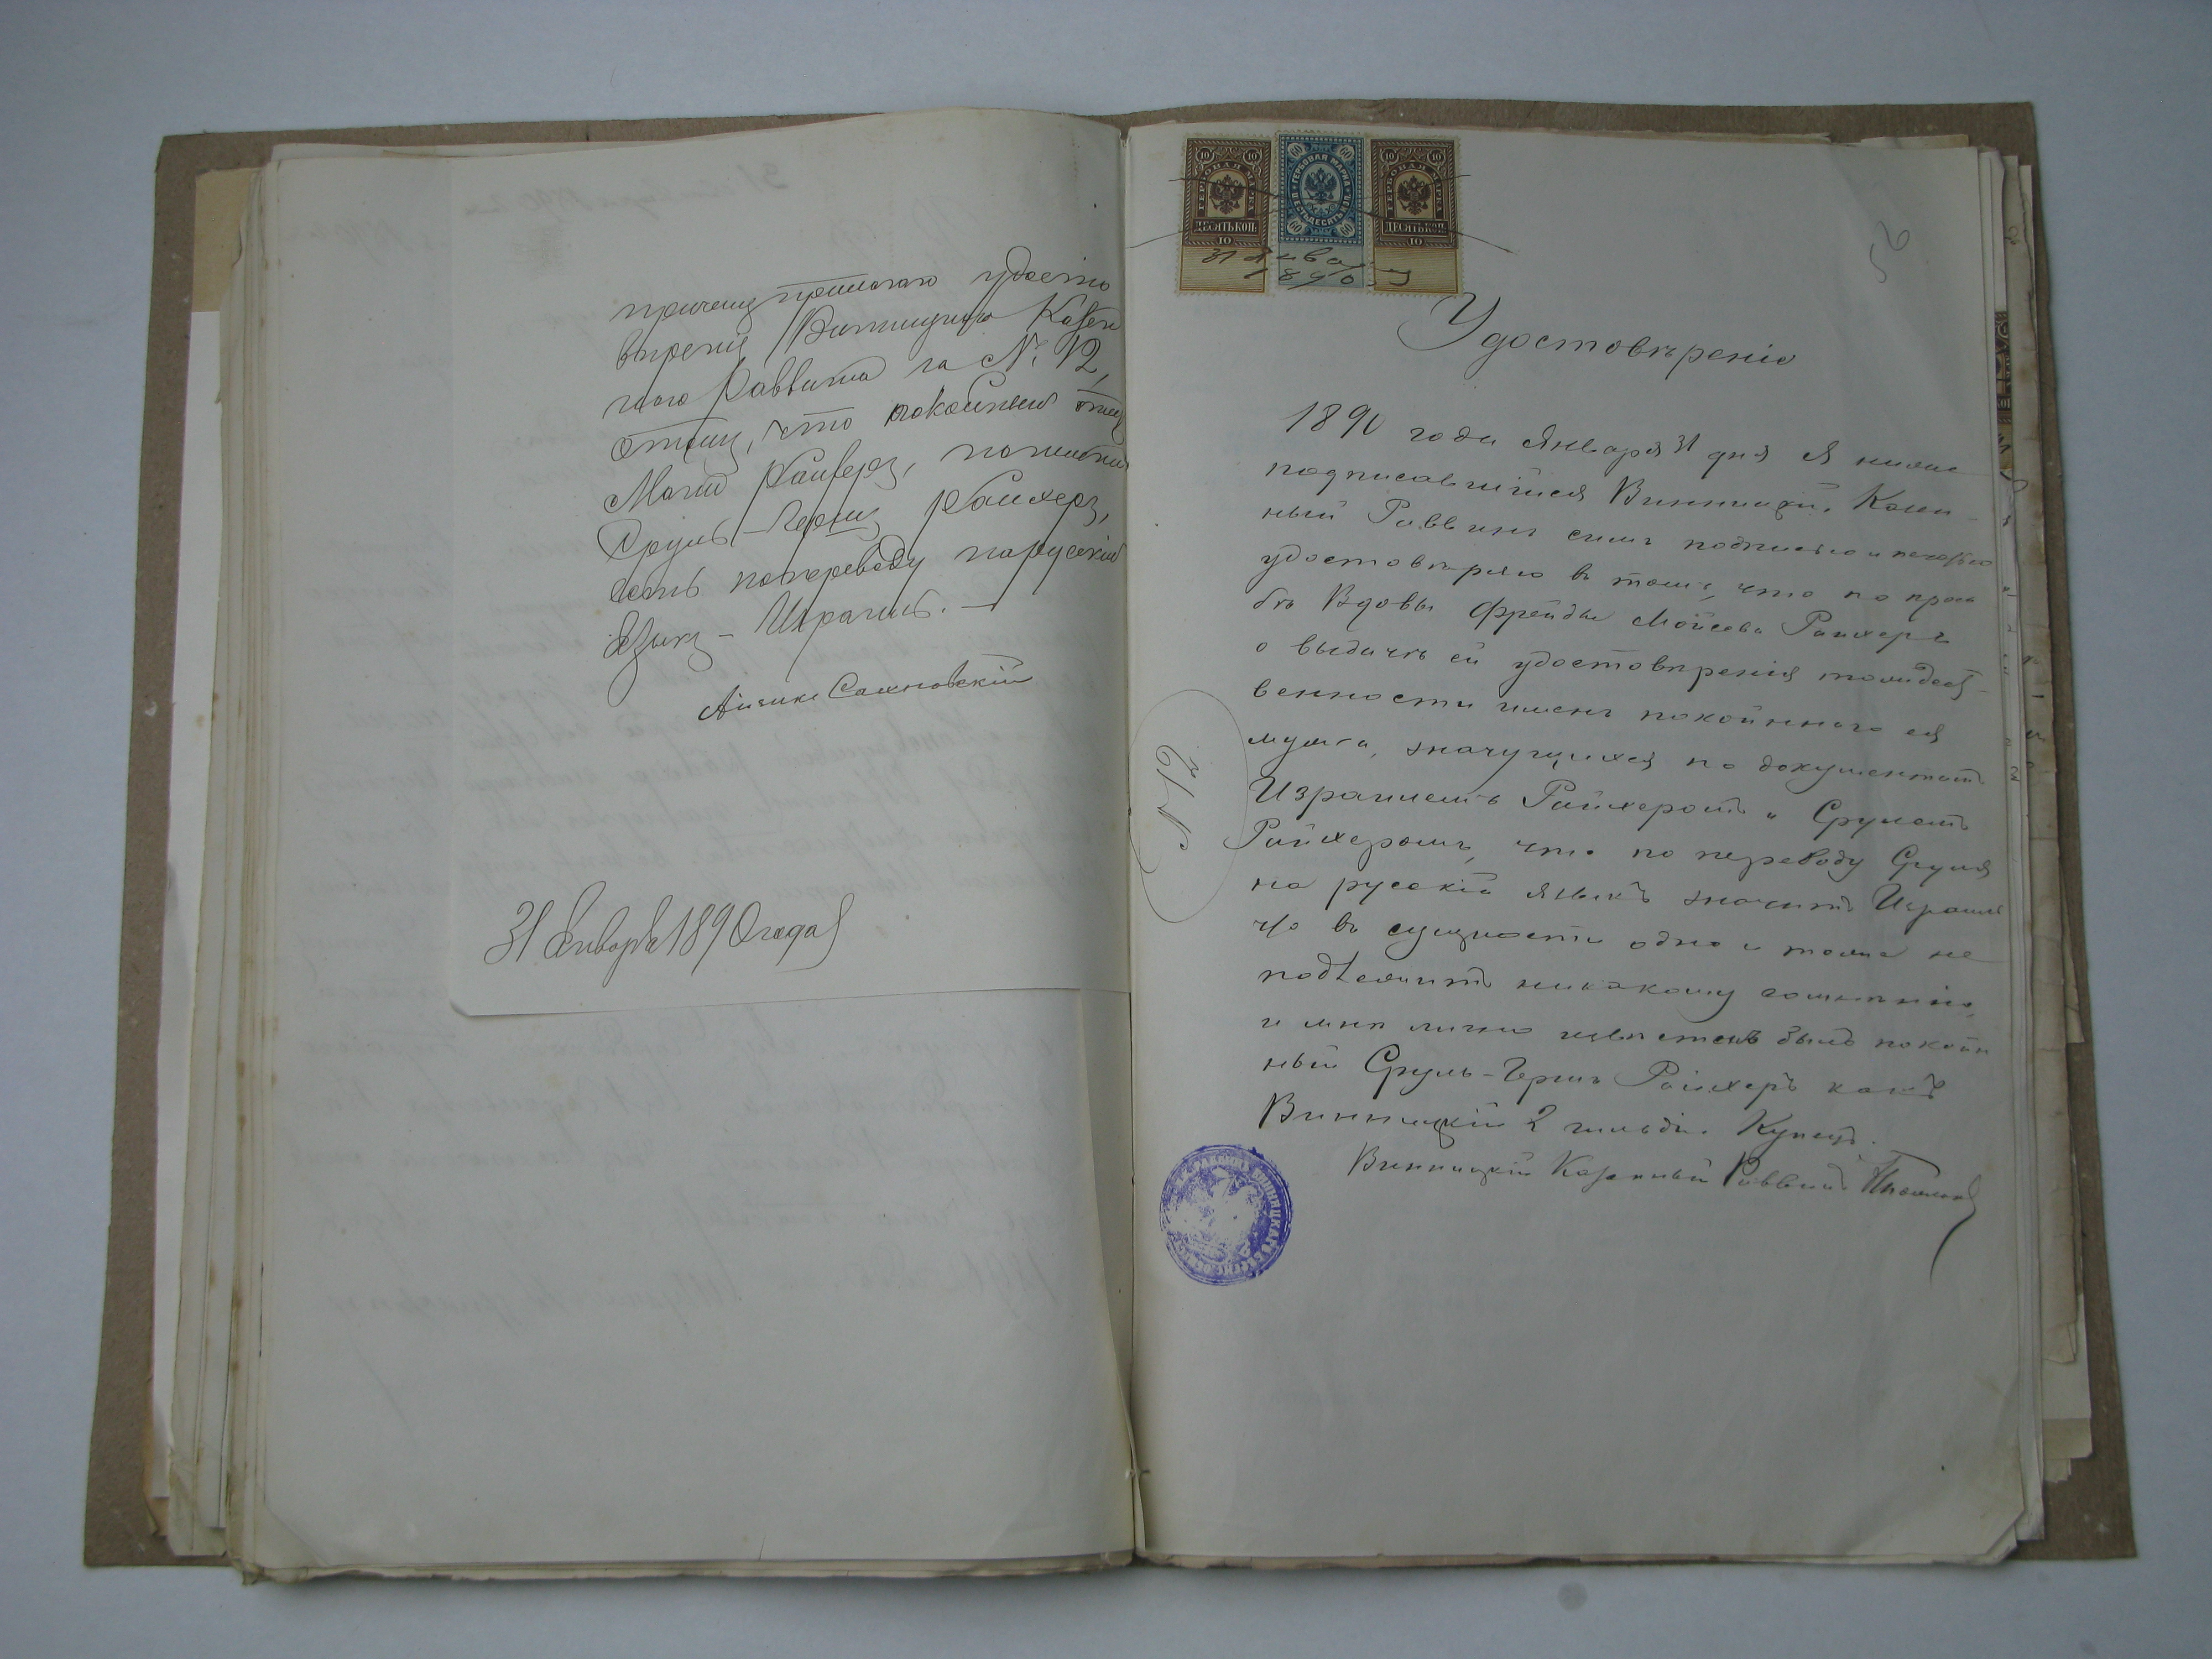 причемъ прилагаю удосто
вѣреніе Винницкаго Казен
наго Раввина за №: 12,
отомъ, что покойный отецъ
Мани Райхеръ, поимени
Сруль-Гершъ Райхеръ,
есть попереводу нарускій
Языкъ - Израиль. -
Айзикъ Сахновскій
31 Января 1890 года
ГЕРБОВАЯ МАРКА
ДЕСЯТЬ КОП.
10
ГЕРБОВАЯ МАРКА
ШЕСТЬДЕСЯТЪ КОП.
60
ГЕРБОВАЯ МАРКА
ДЕСЯТЬ КОП.
10
31 Января
1890
52
Удостовѣреніе
1890 года Января 31 дня Я ниже
подписавшійся Винницкій Казен-
ный Раввинъ симъ подписью и печатью
удостовѣряю въ томъ, что по прось
бѣ Вдовы Фрейды Мойсева Райхеръ
о выдачѣ ей удостовѣренія тождест-
венности именъ покойннаго ея
мужа, значущихся по документамъ
Израилемъ Райхеромъ и Срулемъ
Райхеромъ, что по переводу Сруля
на русскій языкъ значитъ Израиль
что въ сущности одно и тоже не
подлежитъ никакому сомнѣнію,
и мнѣ лично извѣстенъ былъ покой
ный Сруль-Гершъ Райхеръ какъ
Винницкій 2 гильдіи Купецъ.
Винницкій Казенный Раввинъ
№ 12